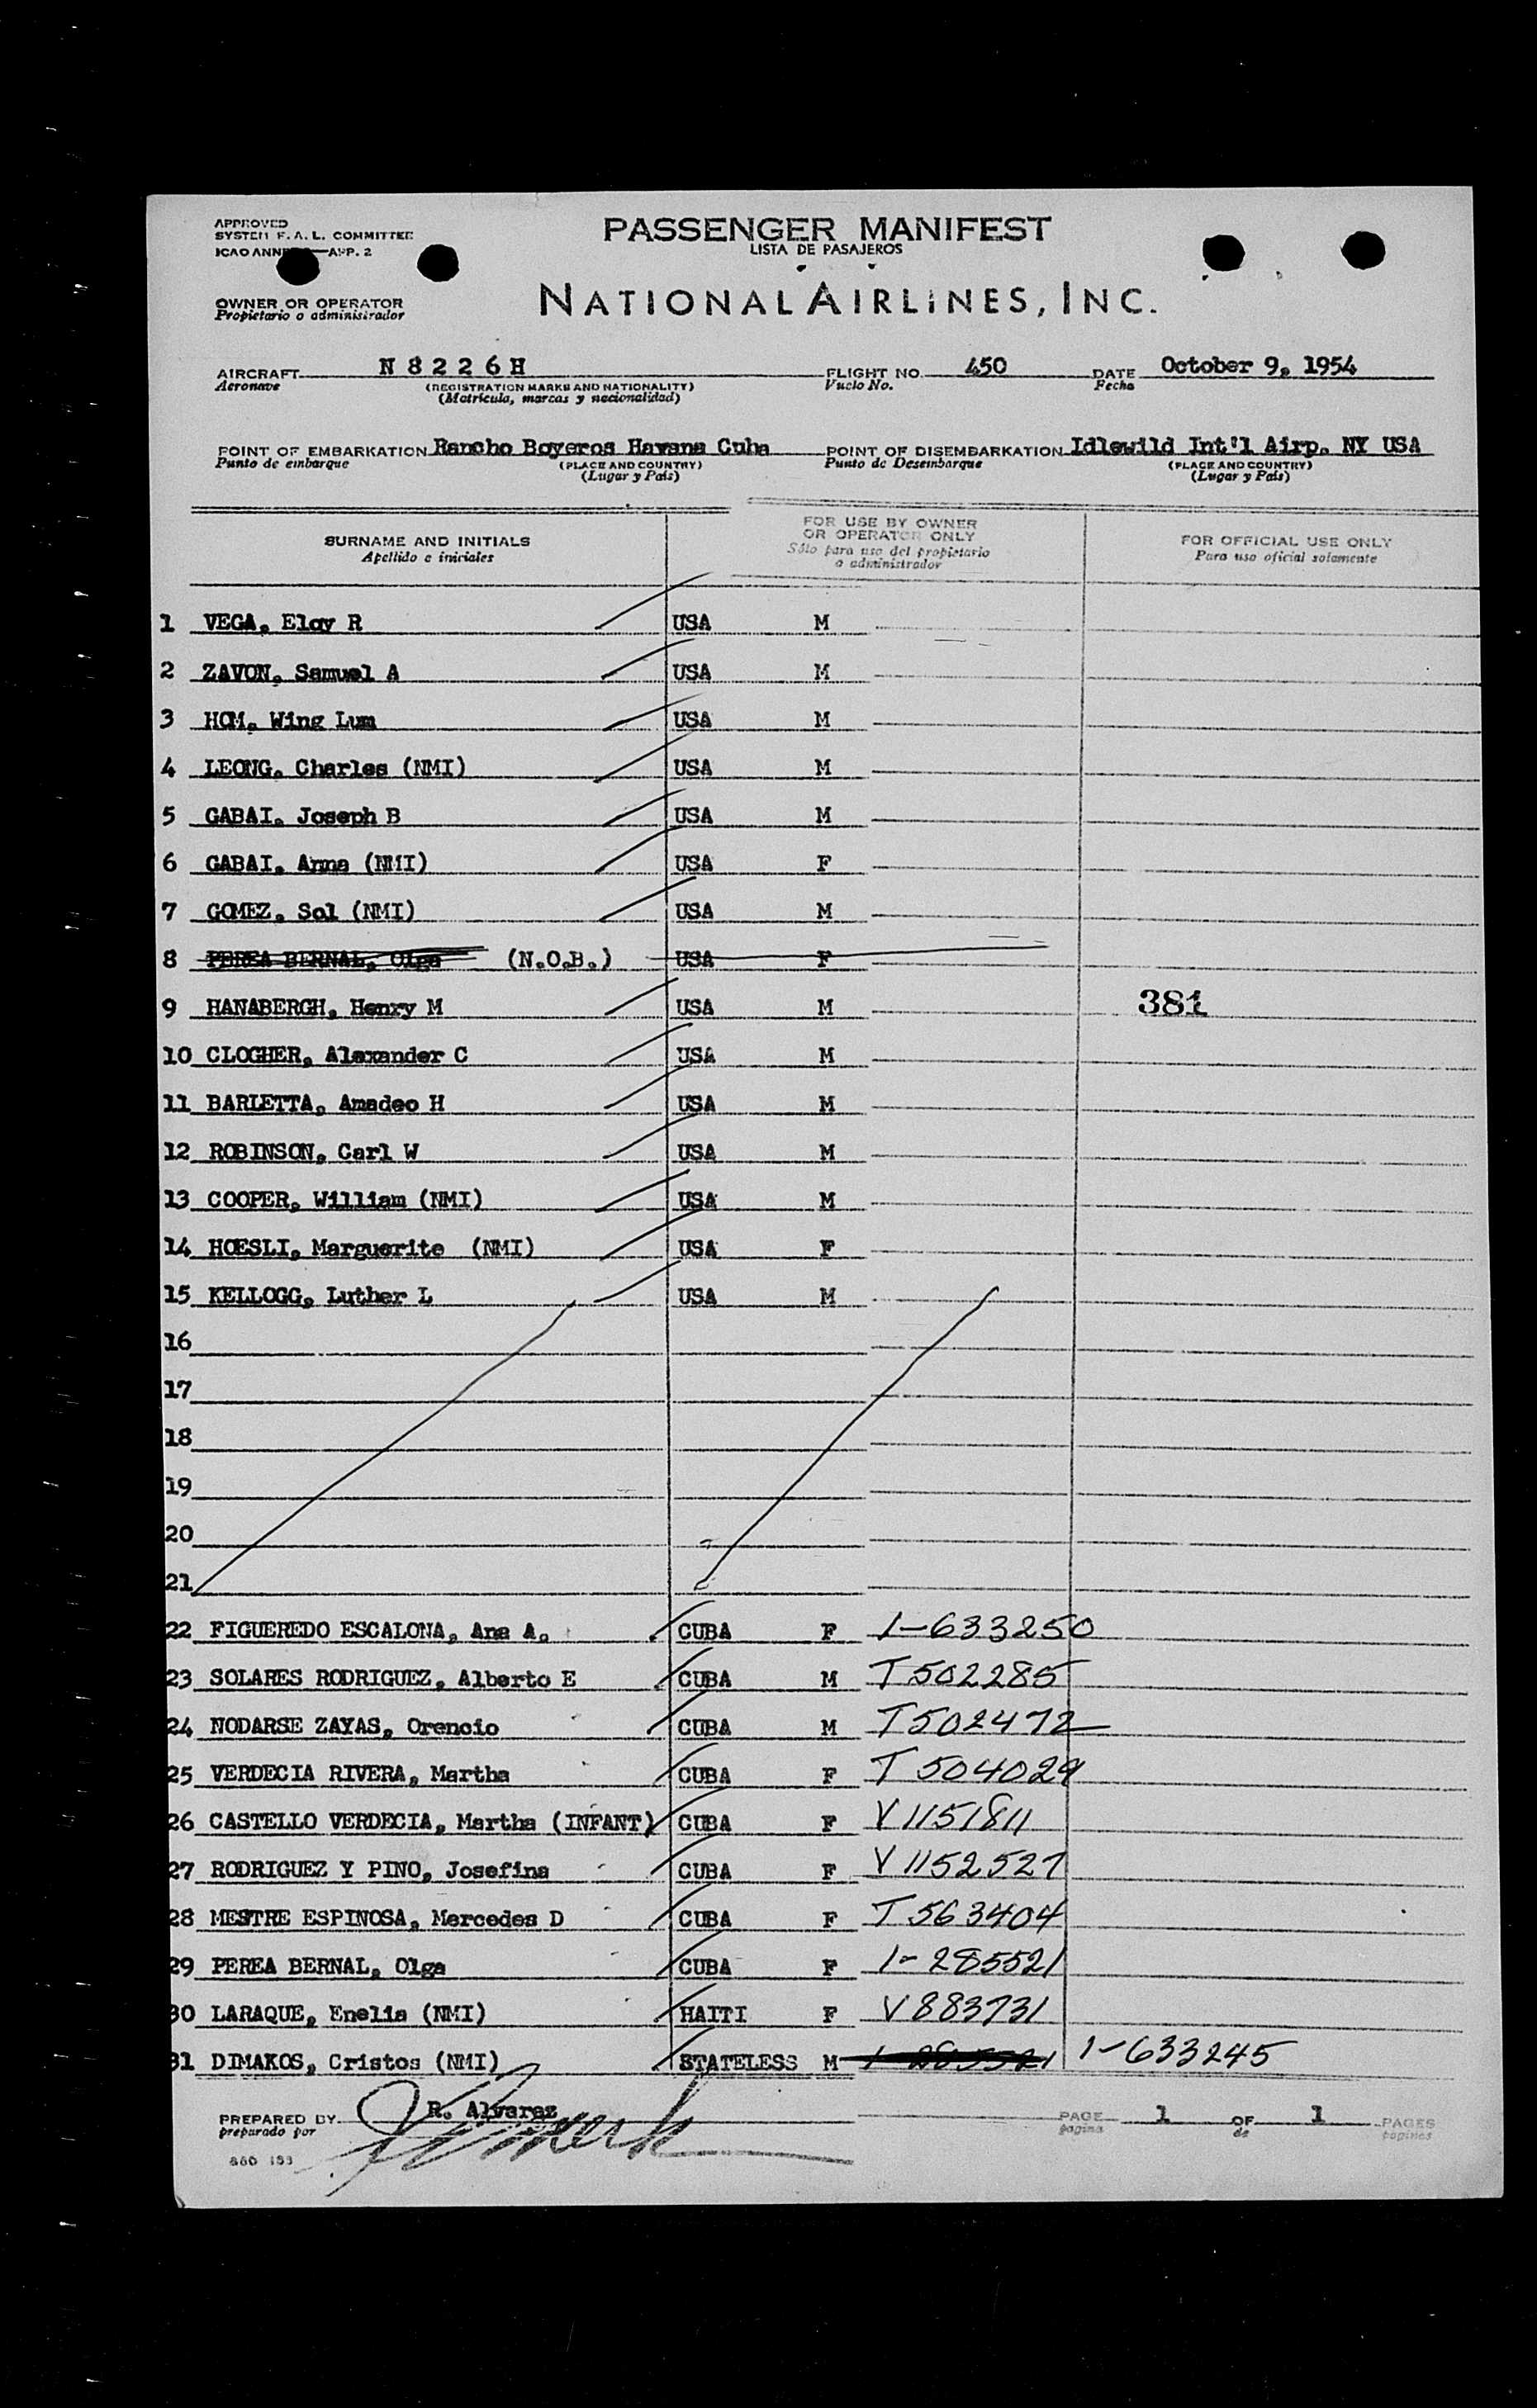 APPROVED
SYSTEM F. A. L. COMMITTEE
ICAO ANNEX —APP. 2
PASSENGER MANIFEST
LISTA DE PASAJEROS
OWNER OR OPERATOR
Propietario o administrador
NATIONAL AIRLINES, INC.
AIRCRAFT N 8 2 2 6 H FLIGHT NO. 450 DATE October 9, 1954
Aeronave (REGISTRATION MARKS AND NATIONALITY) Vuelo No. Fecha
(Matrícula, marcas y nacionalidad)
POINT OF EMBARKATION Rancho Boyeros Havana Cuba POINT OF DISEMBARKATION Idlewild Int'l Airp. NY USA
Punto de embarque (PLACE AND COUNTRY) Punto de Desembarque (PLACE AND COUNTRY)
(Lugar y País) (Lugar y País)
SURNAME AND INITIALS
Apellido e iniciales
FOR USE BY OWNER
OR OPERATOR ONLY
Sólo para uso del propietario
o administrador
FOR OFFICIAL USE ONLY
Para uso oficial solamente
1 VEGA, Eloy R USA M
2 ZAVON, Samuel A USA M
3 HOM, Wing Lum USA M
4 LEONG, Charles (NMI) USA M
5 GABAI, Joseph B USA M
6 GABAI, Anna (NMI) USA F
7 GOMEZ, Sol (NMI) USA M
8 PEREA BERNAL, Olga (N.O.B.) USA F
9 HANABERGH, Henry M USA M 381
10 CLOGHER, Alexander C USA M
11 BARLETTA, Amadeo H USA M
12 ROBINSON, Carl W USA M
13 COOPER, William (NMI) USA M
14 HOESLI, Marguerite (NMI) USA F
15 KELLOGG, Luther L USA M
16
17
18
19
20
21
22 FIGUEREDO ESCALONA, Ana A. CUBA F 1-633250
23 SOLARES RODRIGUEZ, Alberto E CUBA M T502285
24 NODARSE ZAYAS, Orencio CUBA M T502472
25 VERDECIA RIVERA, Martha CUBA F T504029
26 CASTELLO VERDECIA, Martha (INFANT) CUBA F V1151811
27 RODRIGUEZ Y PINO, Josefina CUBA F V1152527
28 MESTRE ESPINOSA, Mercedes D CUBA F T563404
29 PEREA BERNAL, Olga CUBA F 1-285521
30 LARAQUE, Enelia (NMI) HAITI F V883731
31 DIMAKOS, Cristos (NMI) STATELESS M 1-285521 1-633245
PREPARED BY R. Alvarez PAGE 1 OF 1 PAGES
preparado por página de páginas